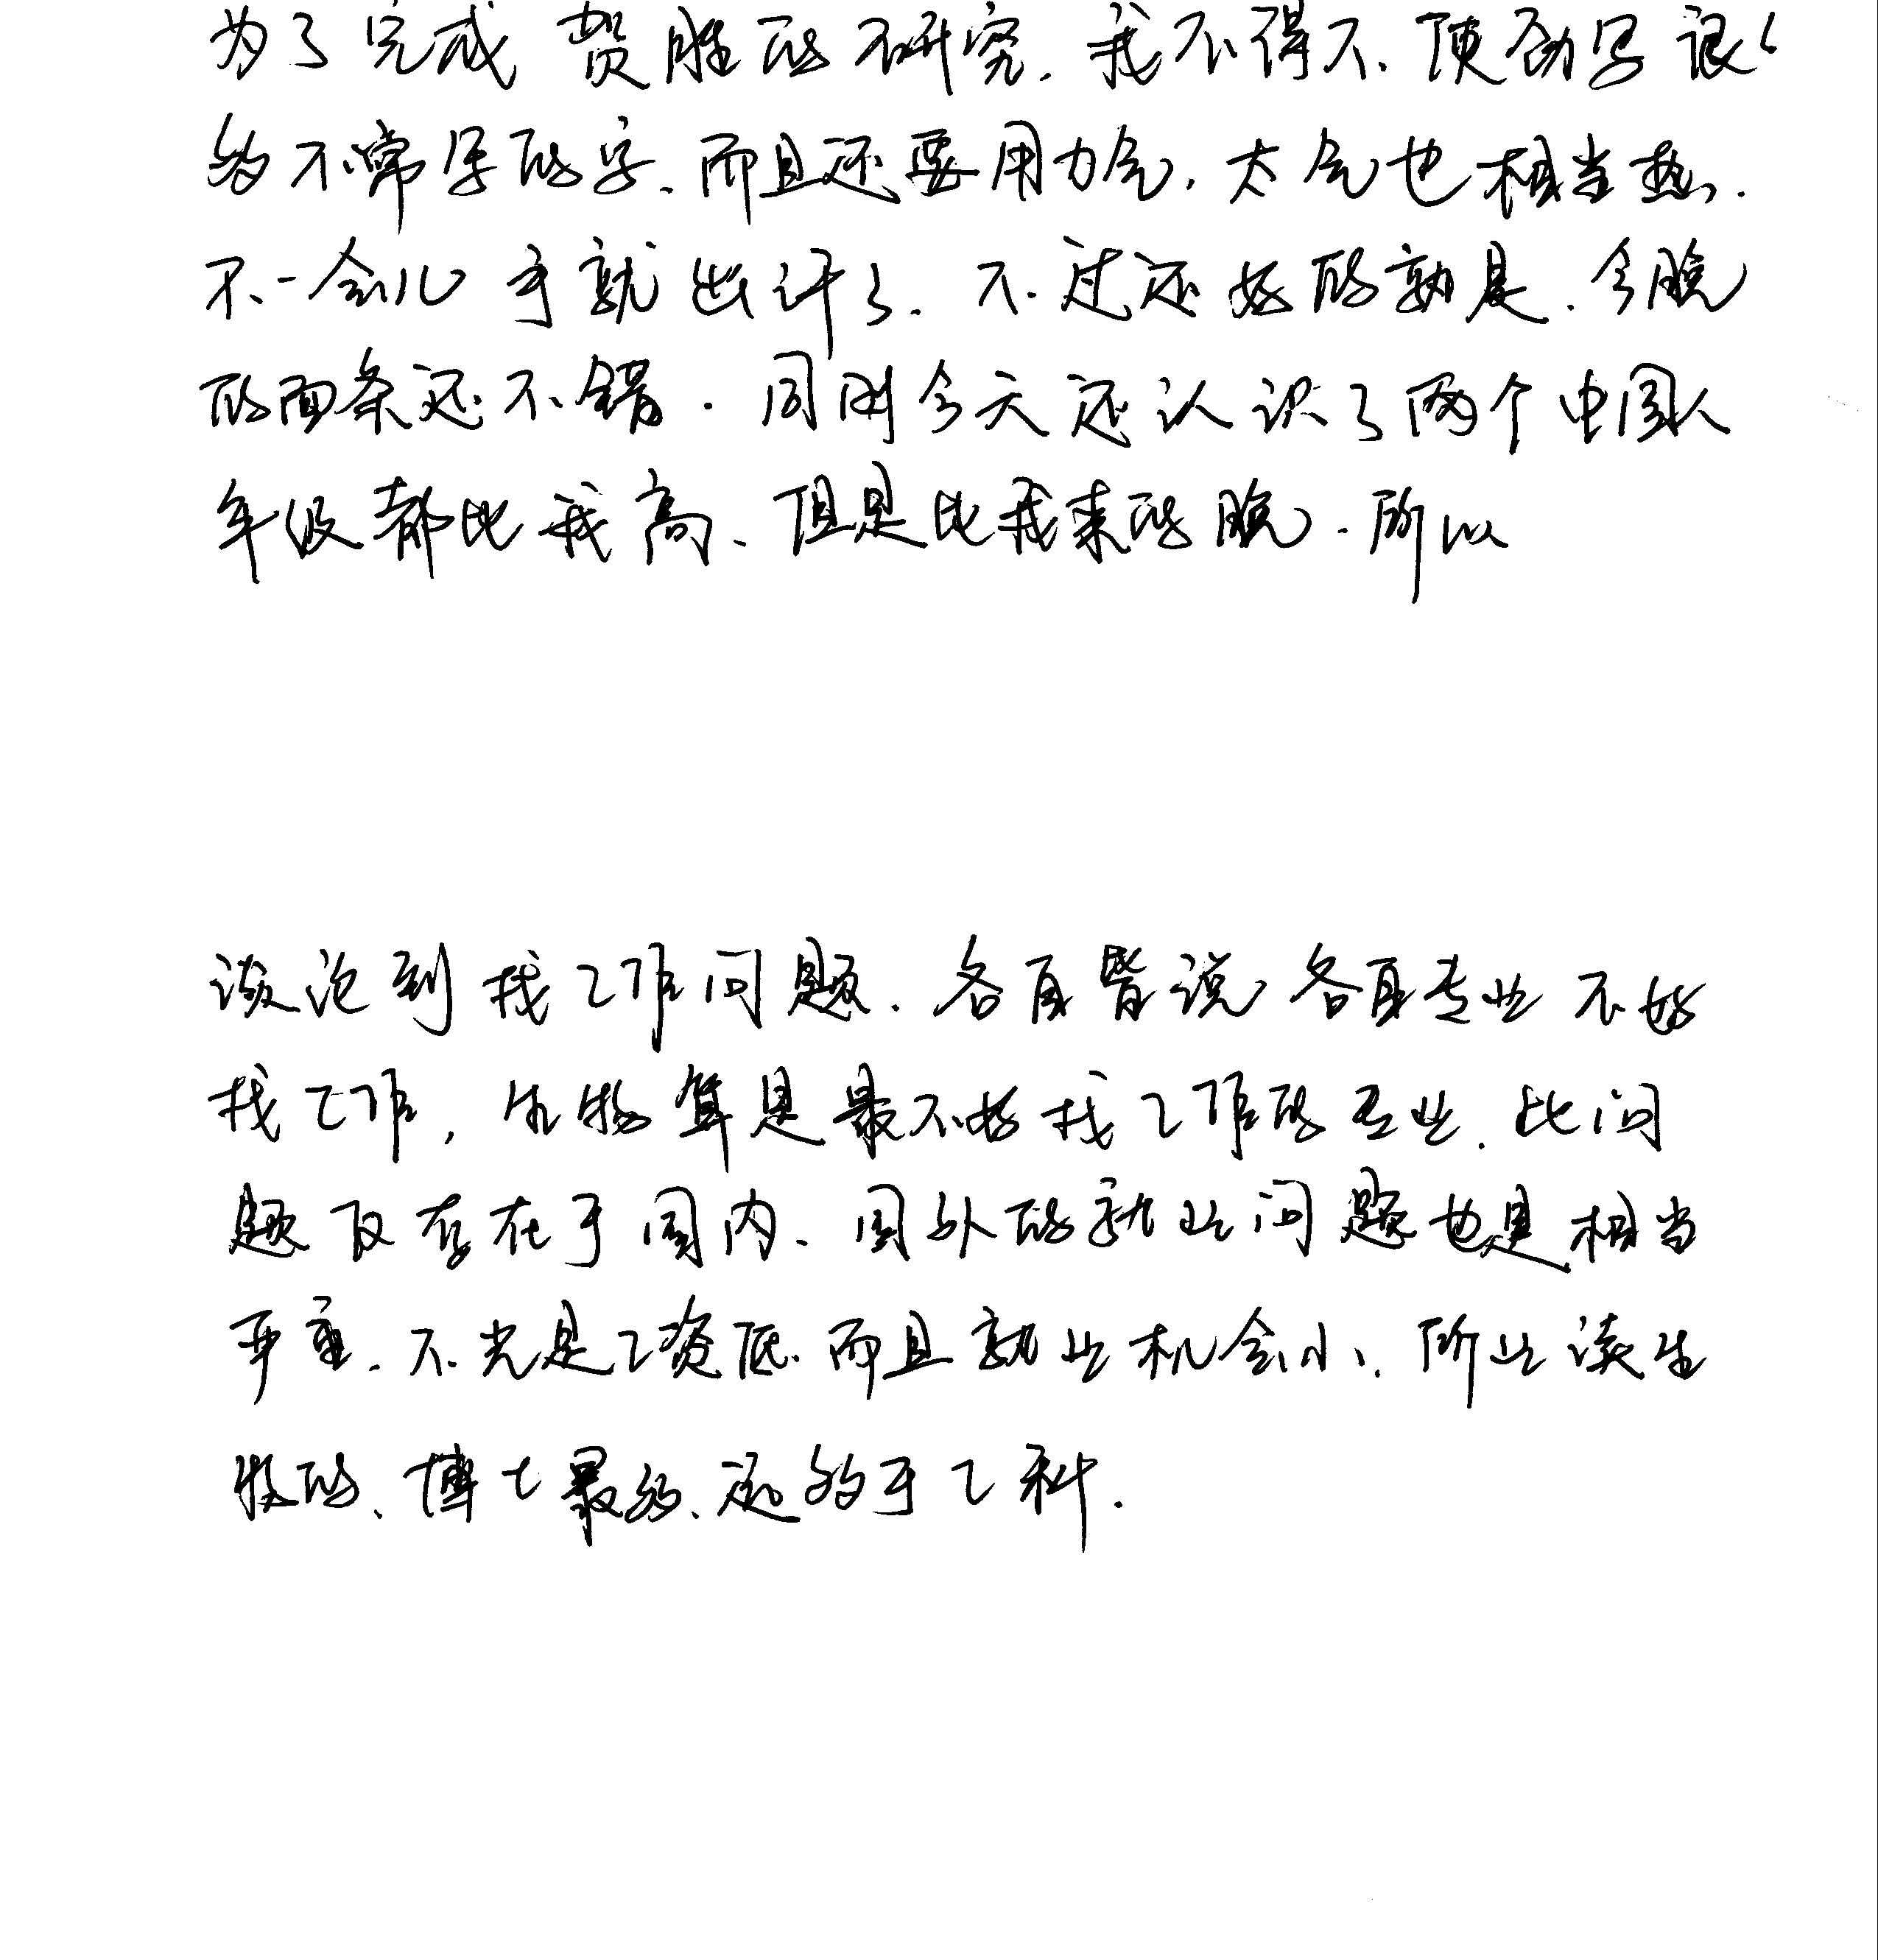 为了完成贺胜的研究,我不得不使劲写很
多不常写的字、而且还要用力气,天气也相当热.
不一会儿手就出汗了.不过还好的就是.今晚
的面条还不错.同时今天还认识了两个中国人
年级都比我高、但是比我来的晚.所以
谈论到找工作问题.各自皆说各自专业不好
找工作,生物算是最不好找工作的专业.此问
题不仅存在于国内、国外的就业问题也是相当
严重.不光是工资低.而且就业机会小.所以读生
物的、博士最多、远多于工科.